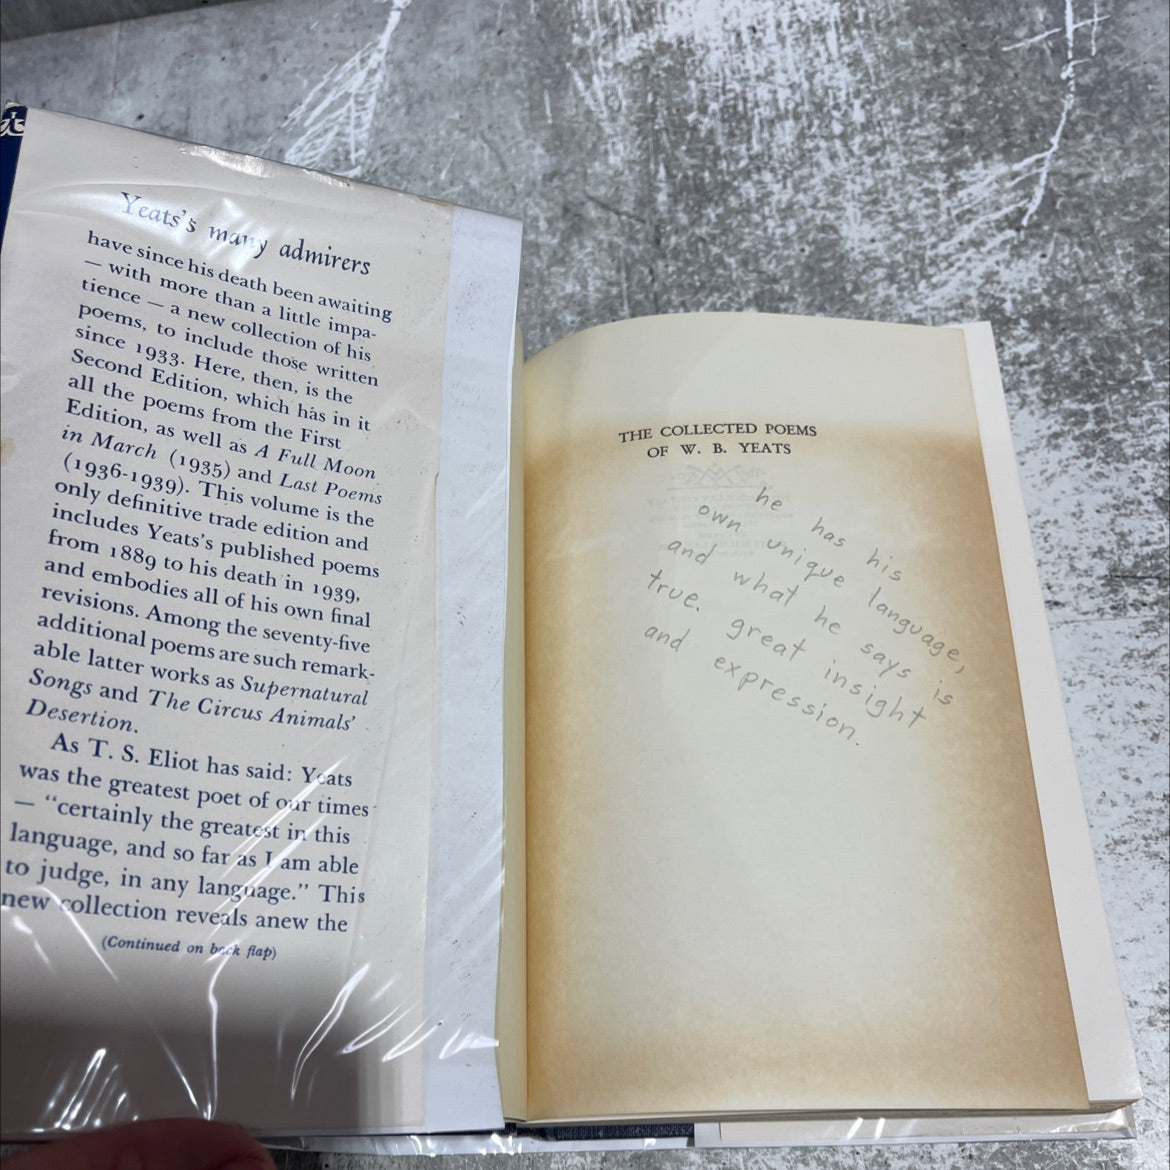 Yeats's many admirers
have since his death been awaiting
— with more than a little impa-
tience — a new collection of his
poems, to include those written
since 1933. Here, then, is the
Second Edition, which has in it
all the poems from the First
Edition, as well as A Full Moon
in March (1935) and Last Poems
(1936-1939). This volume is the
only definitive trade edition and
includes Yeats's published poems
from 1889 to his death in 1939,
and embodies all of his own final
revisions. Among the seventy-five
additional poems are such remark-
able latter works as Supernatural
Songs and The Circus Animals'
Desertion.
As T. S. Eliot has said: Yeats
was the greatest poet of our times
— "certainly the greatest in this
language, and so far as I am able
to judge, in any language." This
new collection reveals anew the
(Continued on back flap)
THE COLLECTED POEMS
OF W. B. YEATS
he has his
own unique language,
and what he says is
true. great insight
and expression.